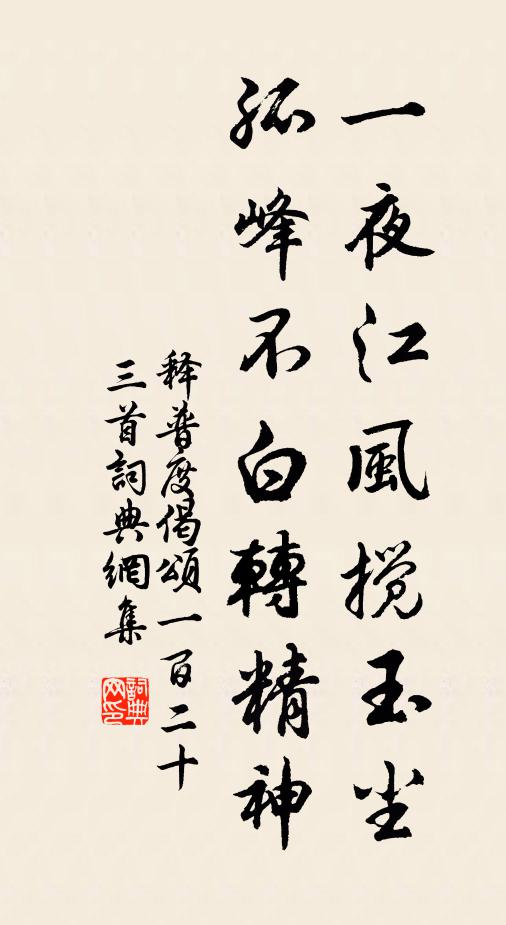 一夜江風攪玉尘
孤峰不白轉精神
释普度偈頌一百二十
三首詞典網集
詞典
网印